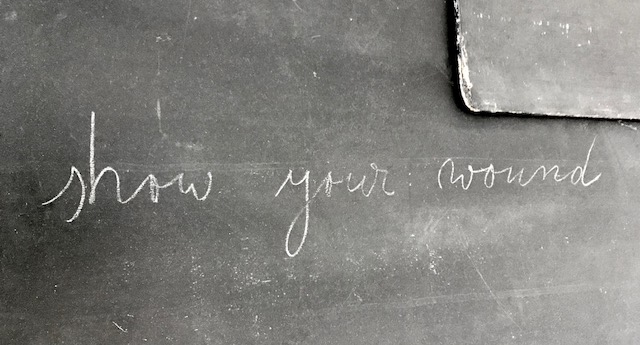 show your wound